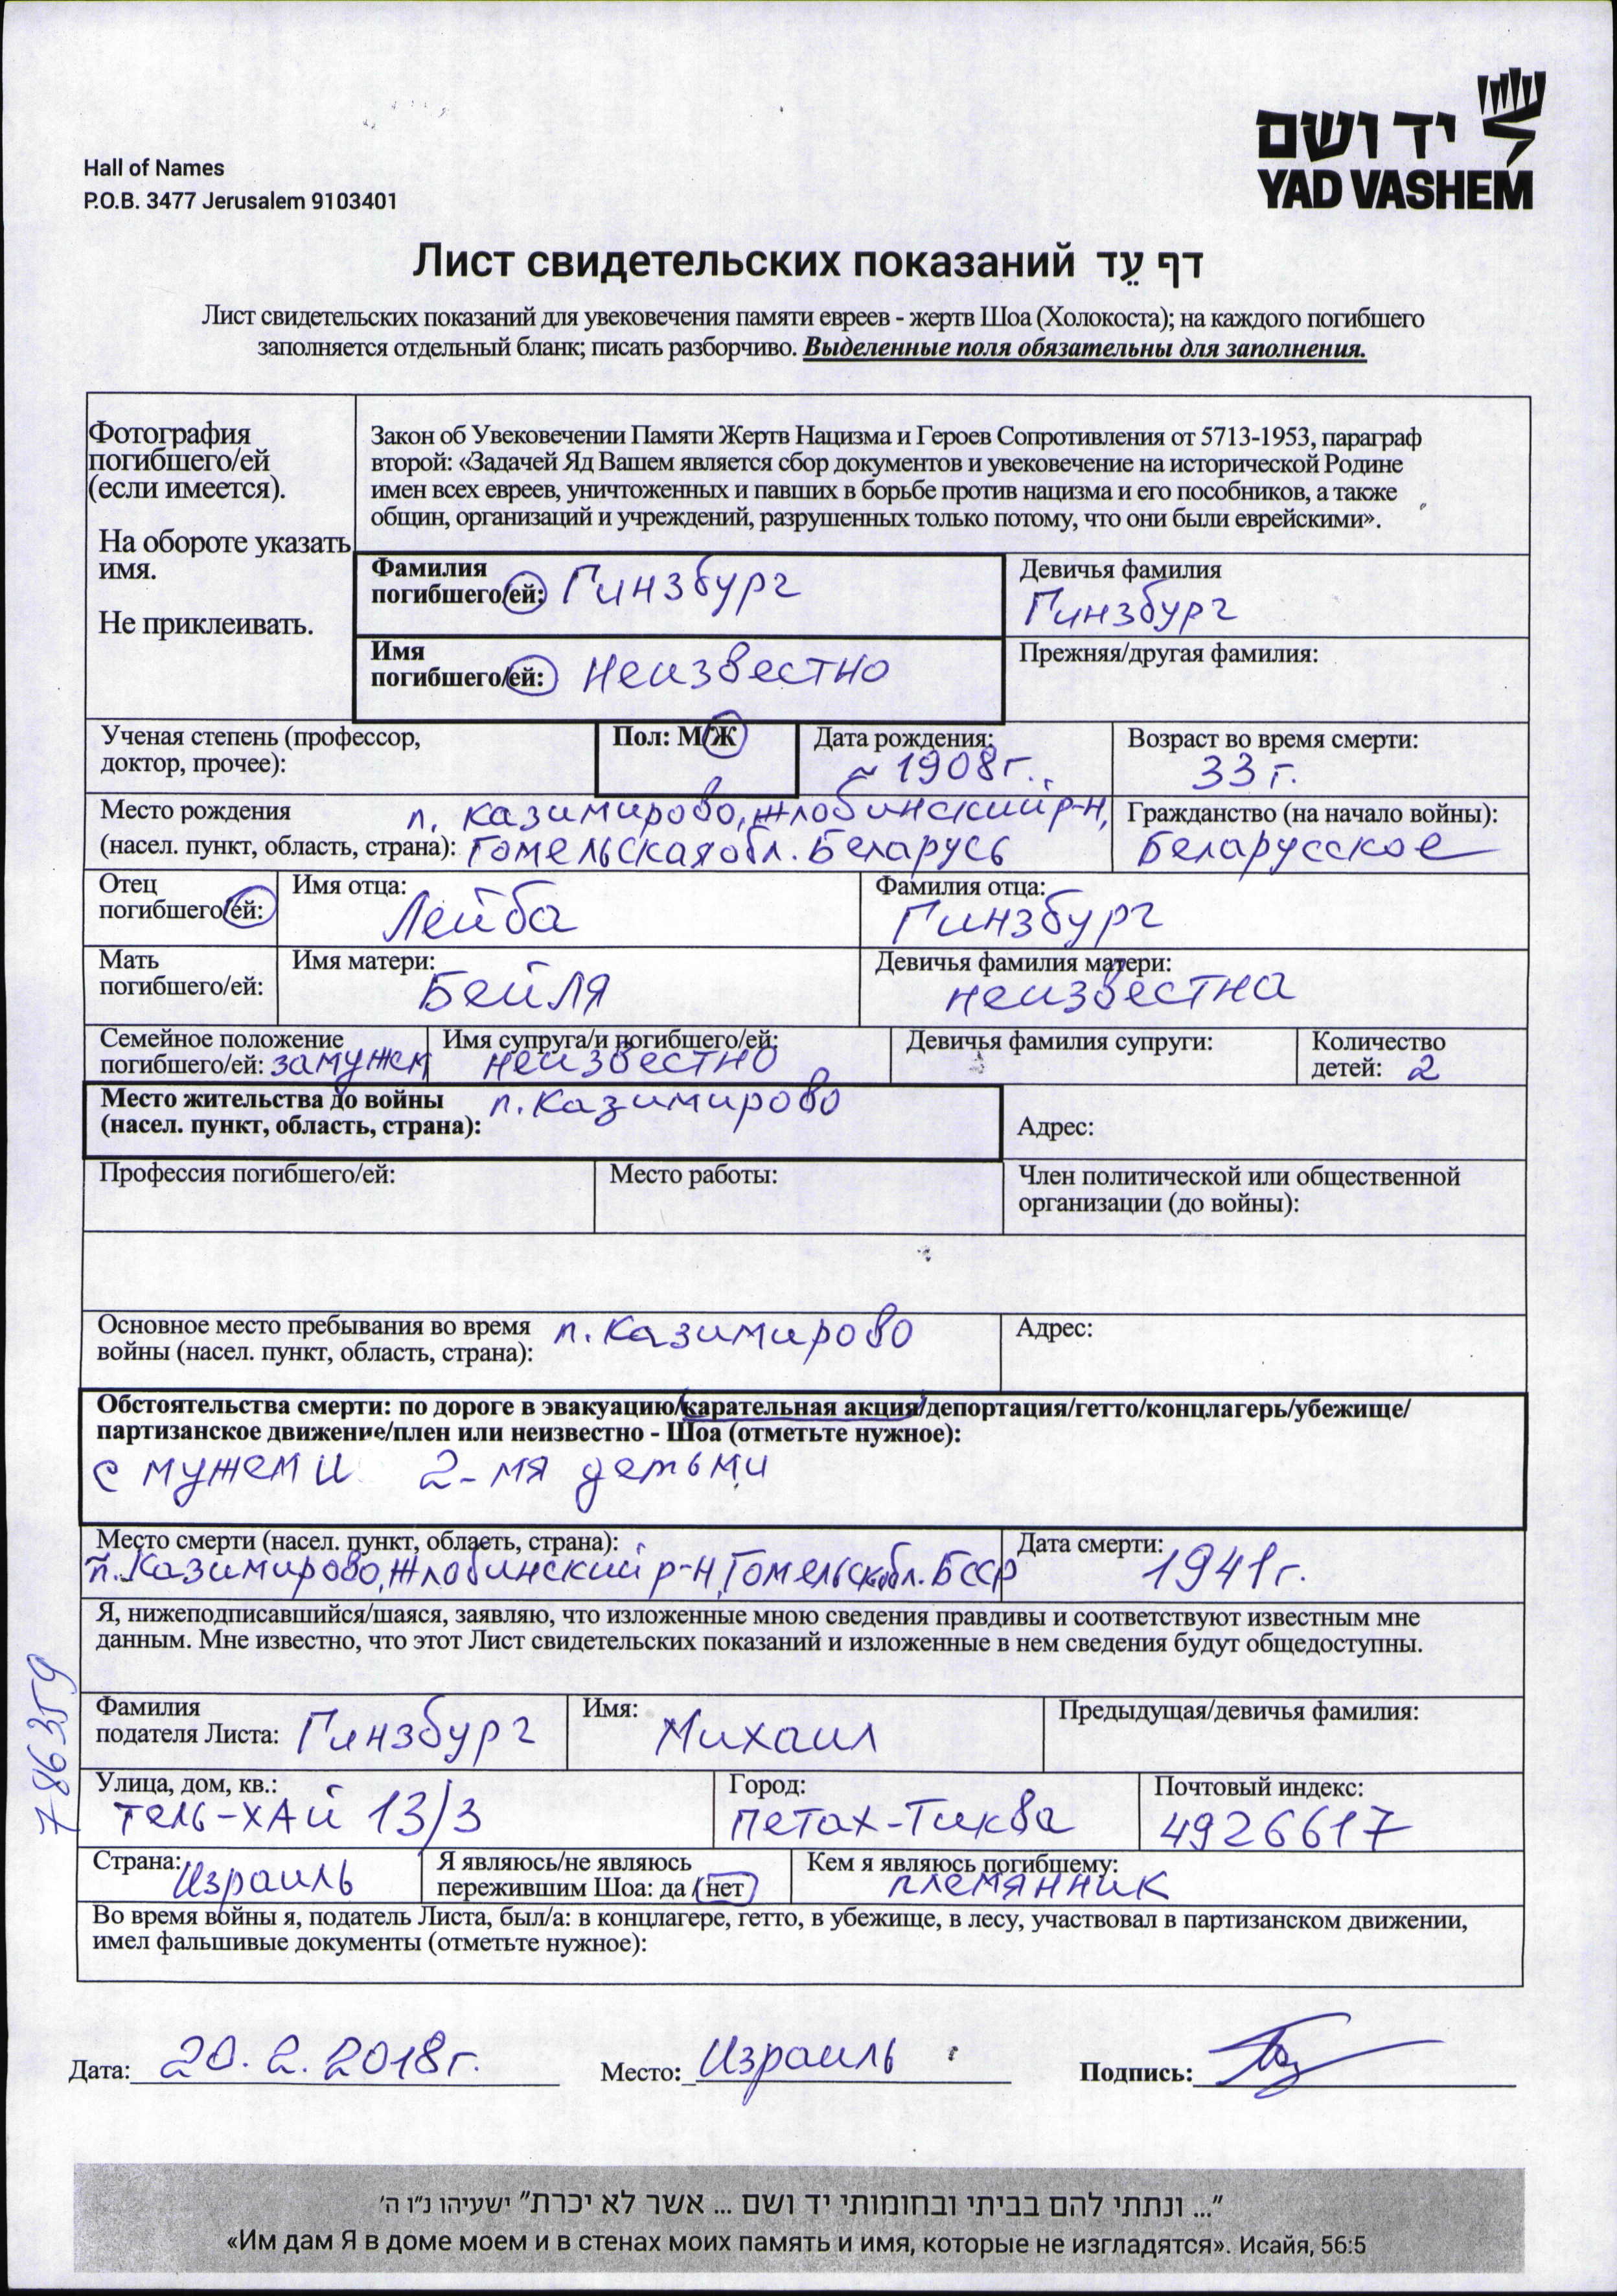 יד ושם
YAD VASHEM
Hall of Names
P.O.B. 3477 Jerusalem 9103401
Лист свидетельских показаний דף עֵד
Лист свидетельских показаний для увековечения памяти евреев - жертв Шоа (Холокоста); на каждого погибшего
заполняется отдельный бланк; писать разборчиво. Выделенные поля обязательны для заполнения.
Фотография
погибшего/ей
(если имеется).
На обороте указать
имя.
Не приклеивать.
Закон об Увековечении Памяти Жертв Нацизма и Героев Сопротивления от 5713-1953, параграф
второй: «Задачей Яд Вашем является сбор документов и увековечение на исторической Родине
имен всех евреев, уничтоженных и павших в борьбе против нацизма и его пособников, а также
общин, организаций и учреждений, разрушенных только потому, что они были еврейскими».
Фамилия
погибшего/ей: Гинзбург
Девичья фамилия
Гинзбург
Имя
погибшего/ей: Неизвестно
Прежняя/другая фамилия:
Ученая степень (профессор,
доктор, прочее):
Пол: М/Ж
Дата рождения:
~ 1908г.
Возраст во время смерти:
33 г.
Место рождения п. Казимирово, Жлобинский р-н,
(насел. пункт, область, страна): Гомельская обл. Беларусь
Гражданство (на начало войны):
Беларусское
Отец
погибшего/ей:
Имя отца:
Лейба
Фамилия отца:
Гинзбург
Мать
погибшего/ей:
Имя матери:
Бейля
Девичья фамилия матери:
неизвестна
Семейное положение
погибшего/ей: замужем
Имя супруга/и погибшего/ей:
неизвестно
Девичья фамилия супруги:
Количество
детей: 2
Место жительства до войны п. Казимирово
(насел. пункт, область, страна):
Адрес:
Профессия погибшего/ей:
Место работы:
Член политической или общественной
организации (до войны):
Основное место пребывания во время п. Казимирово
войны (насел. пункт, область, страна):
Адрес:
Обстоятельства смерти: по дороге в эвакуацию/карательная акция/депортация/гетто/концлагерь/убежище/
партизанское движение/плен или неизвестно - Шоа (отметьте нужное):
с мужем и 2-мя детьми
Место смерти (насел. пункт, область, страна):
п. Казимирово, Жлобинский р-н, Гомельск.обл. БССР
Дата смерти:
1941г.
Я, нижеподписавшийся/шаяся, заявляю, что изложенные мною сведения правдивы и соответствуют известным мне
данным. Мне известно, что этот Лист свидетельских показаний и изложенные в нем сведения будут общедоступны.
786359
Фамилия
подателя Листа: Гинзбург
Имя:
Михаил
Предыдущая/девичья фамилия:
Улица, дом, кв.:
Тель-Хай 13/3
Город:
Петах-Тиква
Почтовый индекс:
4926617
Страна: Израиль
Я являюсь/не являюсь
пережившим Шоа: да / нет
Кем я являюсь погибшему:
племянник
Во время войны я, податель Листа, был/а: в концлагере, гетто, в убежище, в лесу, участвовал в партизанском движении,
имел фальшивые документы (отметьте нужное):
Дата: 20.2.2018г. Место: Израиль Подпись:
"... ונתתי להם בביתי ובחומותי יד ושם ... אשר לא יכרת" ישעיהו נ"ו ה'
«Им дам Я в доме моем и в стенах моих память и имя, которые не изгладятся». Исайя, 56:5